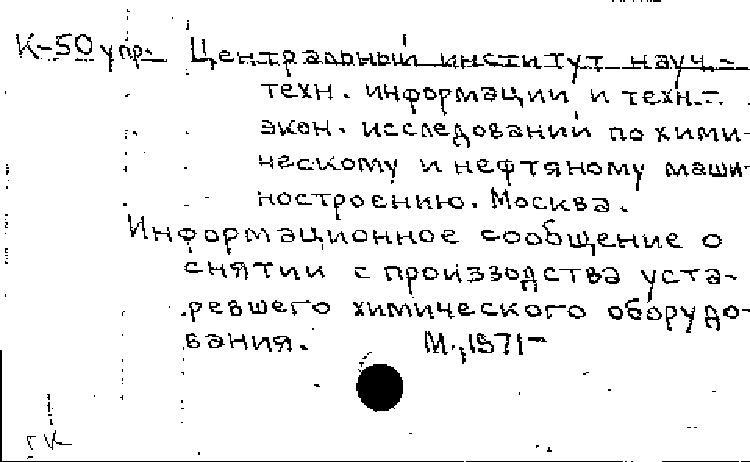 К-50 упр. Центральный институт науч.-
техн. информации и техн.-
экон. исследований по хими-
ческому и нефтяному маши-
ностроению. Москва.
Информационное сообщение о
снятии с производства уста-
ревшего химического оборудо-
вания. М., 1971-
ГК